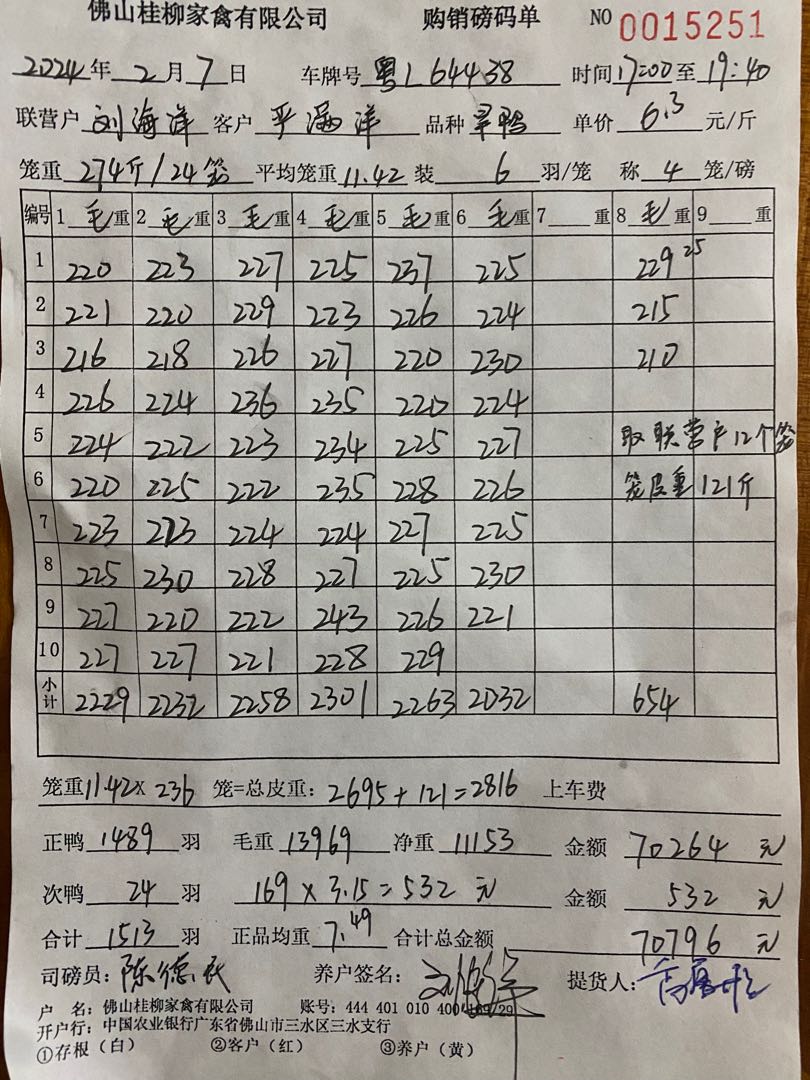 佛山桂柳家禽有限公司 购销磅码单 NO 0015251
2024年2月7日 车牌号 粤L64438 时间17:00至19:40
联营户 刘海洋 客户 品种 旱鸭 单价 6.3 元/斤
笼重 274斤/24笼 平均笼重11.42 装 6 羽/笼 称 4 笼/磅
编号 1毛重 2毛重 3毛重 4毛重 5毛重 6毛重 7 重 8毛重 9 重
1 220 223 227 225 237 225 229 25
2 221 220 229 223 226 224 215
3 216 218 226 227 220 230 210
4 226 224 236 235 220 224
5 224 222 223 234 225 227 取联营户12个笼
6 220 225 222 235 228 226 笼皮重121斤
7 223 223 224 224 227 225
8 225 230 228 227 225 230
9 227 220 222 243 226 221
10 227 227 221 228 229
小计 2229 2232 2258 2301 2263 2032 654
笼重11.42×236 笼=总皮重：2695+121=2816 上车费
正鸭 1489 羽 毛重 13969 净重 11153 金额 70264 元
次鸭 24 羽 169×3.15=532元 金额 532 元
合计 1513 羽 正品均重 7.49 合计总金额 70796 元
司磅员：陈德长 养户签名： 提货人：
户 名：佛山桂柳家禽有限公司 账号：444 401 010 400
开户行：中国农业银行广东省佛山市三水区三水支行
①存根（白） ②客户（红） ③养户（黄）